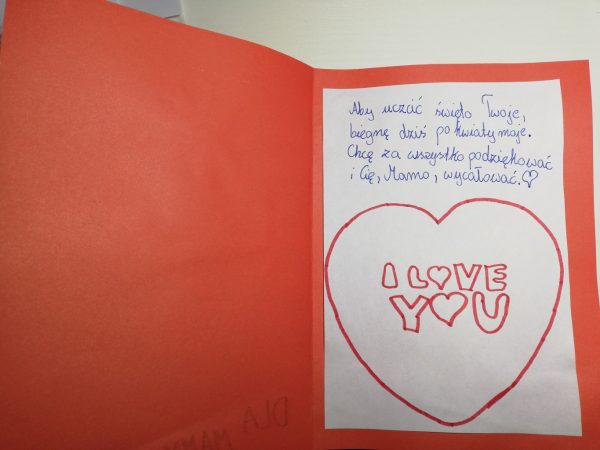 Aby uczcić święto Twoje,
biegnę dziś po kwiaty moje.
Chcę za wszystko podziękować
i Cię, Mamo, wycałować.♡
I LOVE
YOU
DLA